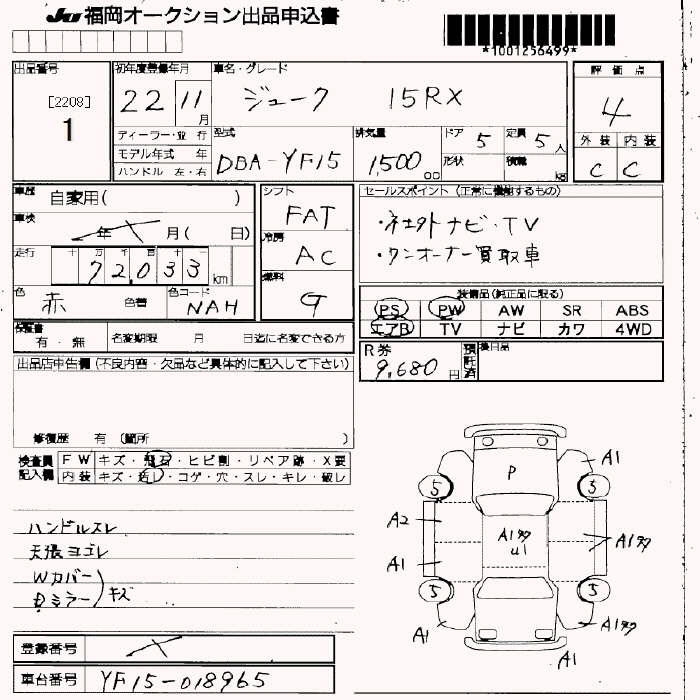 JU 福岡オークション出品申込書
*1001256499*
出品番号
[2208]
1
初年度登録年月
22 11 月
車名・グレード
ジューク 15RX
評価点
4
外装 内装
C C
ディーラー・並行
モデル年式 年
ハンドル 左・右
型式
DBA-YF15
排気量
1,500 cc
ドア 5
形状
定員 5 人
積載 kg
車歴 自家用( )
車検
年 月( 日)
走行
十 万 千 百 十 一
72,033 km
色 赤 色替
色コード NAH
シフト
FAT
冷房
AC
燃料
G
セールスポイント (正常に機能するもの)
・ネエクトナビ・TV
・ワンオーナー買取車
装備品(純正品に限る)
PS PW AW SR ABS
エアB TV ナビ カワ 4WD
保証書 有・無
名変期限 月 日迄に名変できる方
R券
9,680 円
預託済
後日品
出品店申告欄(不良内容・欠品など具体的に記入して下さい)
修復歴 有 (箇所 )
検査員記入欄
FW キズ・飛石・ヒビ割・リペア跡・X要
内装 キズ・汚レ・コゲ・穴・スレ・キレ・破レ
ハンドルスレ
天張ヨゴレ
Wカバー
Dミラー
キズ
登録番号
車台番号 YF15-018965
A1
P
5 5
A2
A1タタ
U1
A1タタ
A1
5 5
A1
A1タタ
A1